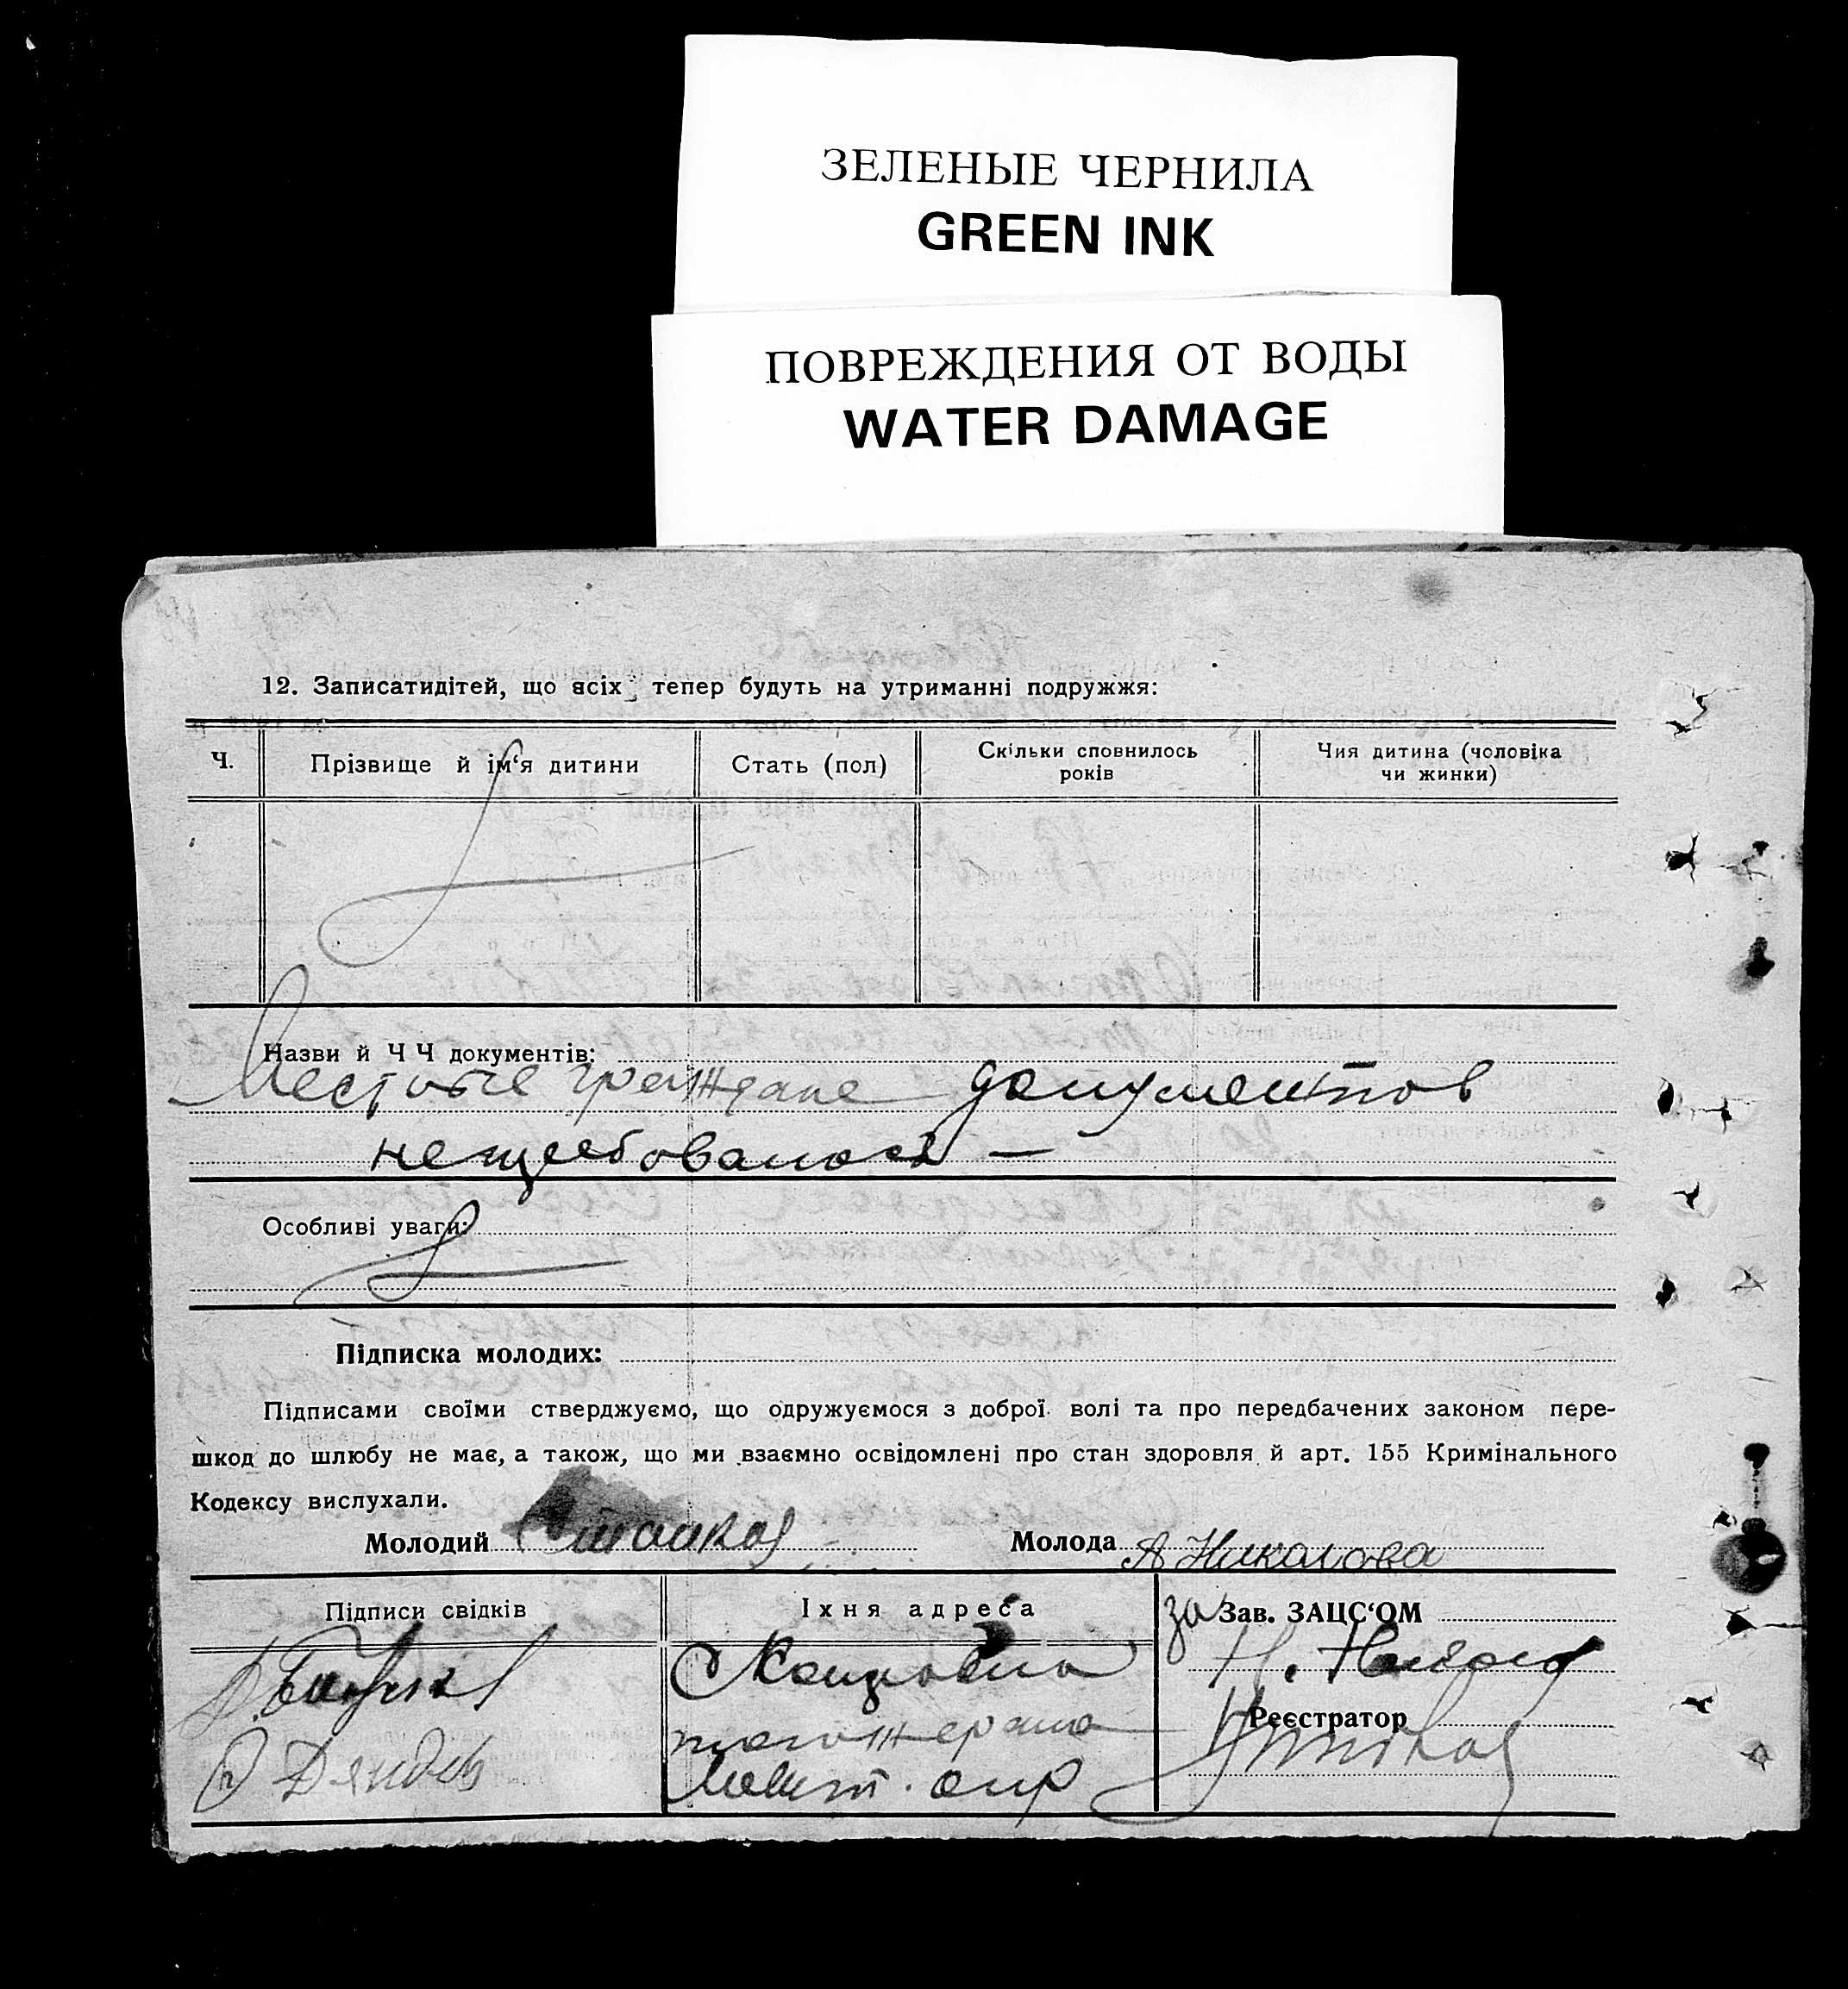 ЗЕЛЕНЫЕ ЧЕРНИЛА
GREEN INK
ПОВРЕЖДЕНИЯ ОТ ВОДЫ
WATER DAMAGE
12. Записатидітей, що всіх тепер будуть на утриманні подружжя:
Ч.
Прізвище й ім‘я дитини
Стать (пол)
Скільки сповнилось
років
Чия дитина (чоловіка
чи жинки)
Назви й Ч Ч документів:
Местные граждане документов
нетребовалось —
Особливі уваги:
Підписка молодих:
Підписами своїми стверджуємо, що одружуємося з доброї волі та про передбачених законом пере-
шкод до шлюбу не має, а також, що ми взаємно освідомлені про стан здоровля й арт. 155 Кримінального
Кодексу вислухали.
Молодий
Молода А Николова
Підписи свідків
Їхня адреса
за Зав. ЗАЦС‘ОМ
Реєстратор